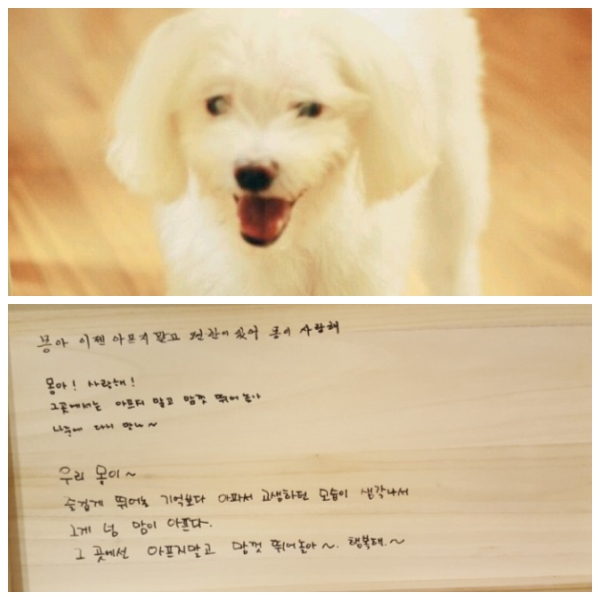 몽아 이젠 아프지 말고 편안히 있어 몽이 사랑해
몽아! 사랑해!
그곳에서는 아프지 말고 맘껏 뛰어 놀아
나중에 다시 만나~
우리 몽이~
즐겁게 뛰어놀 기억보다 아파서 고생하던 모습이 생각나서
그게 넘 맘이 아프다.
그 곳에선 아프지말고 맘껏 뛰어놀아~. 행복해.~